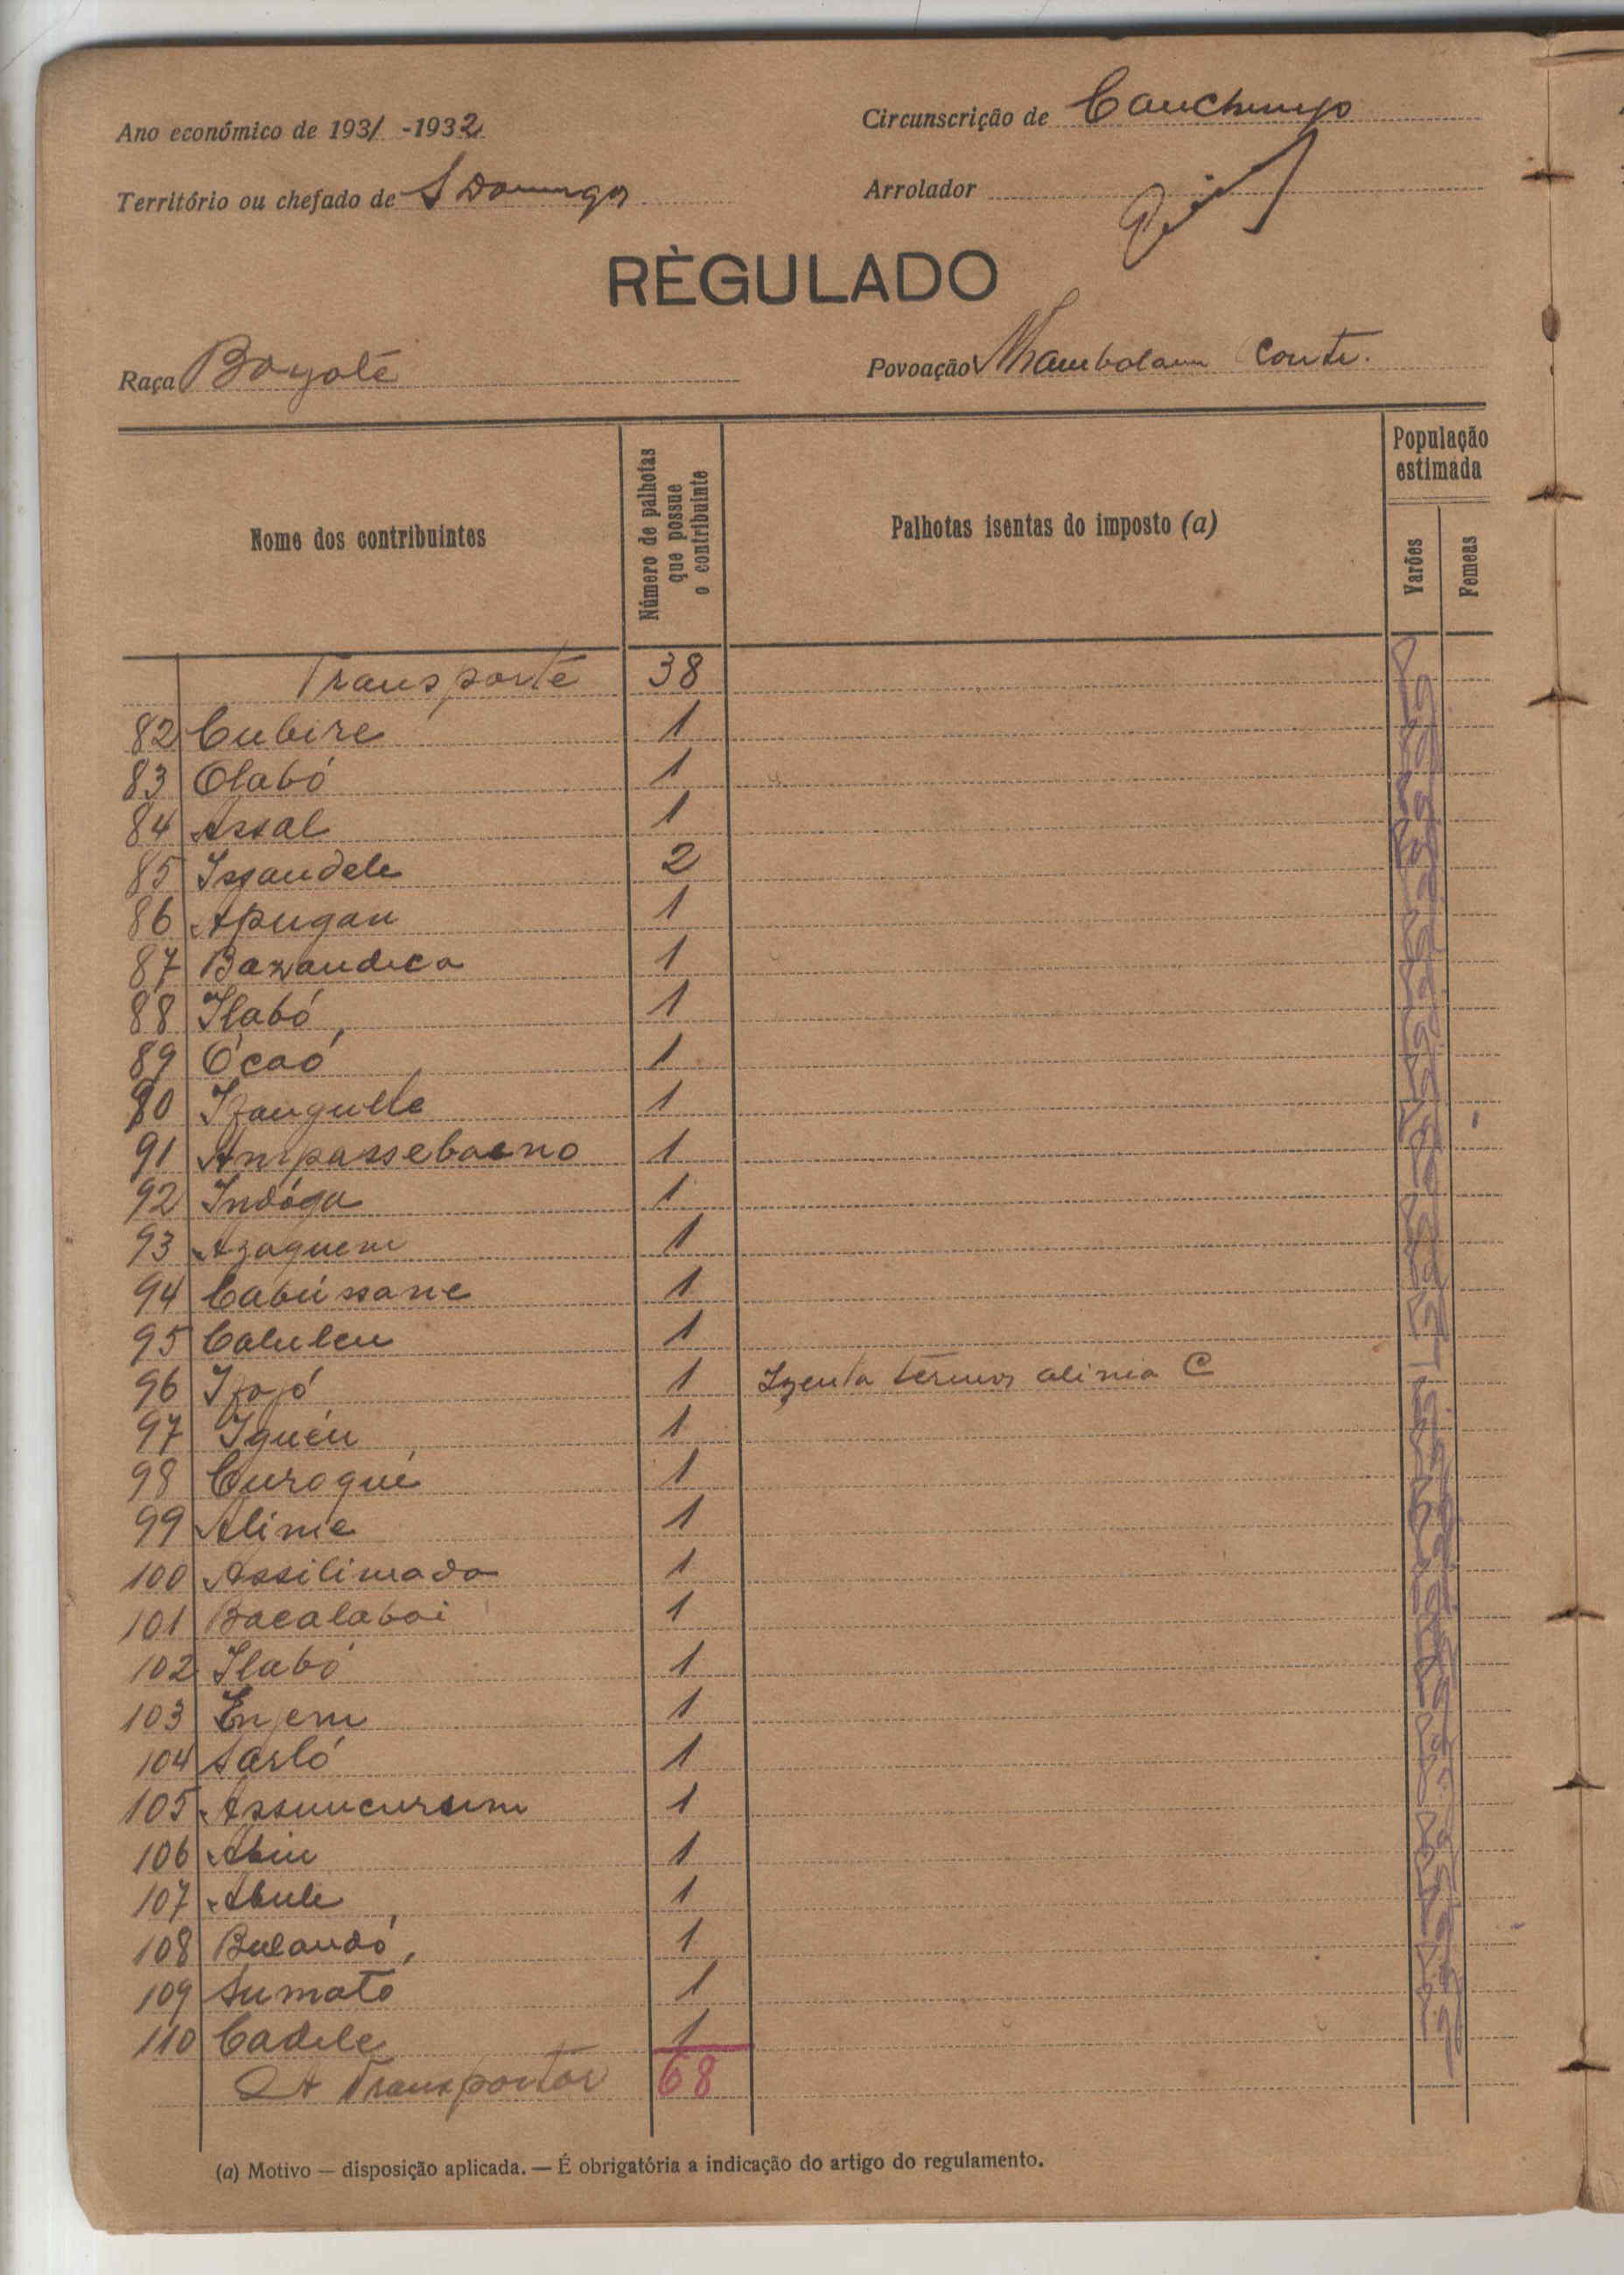 Ano económico de 1931 -1932
Circunscrição de Canchungo
Território ou chefado de S Domingos
Arrolador
RÈGULADO
Raça Bayote
Povoação Nhambolam Conte.
Nome dos contribuintes
Número de palhotas que possue o contribuinte
Palhotas isentas do imposto (a)
População estimada
Varões
Femeas
Transporte 38
82 Cubire 1
83 Olabó 1
84 Assal 1
85 Issandele 2
86 Apugan 1
87 Bazandica 1
88 Ilabó 1
89 Ócaó 1
80 Izanguelle 1
91 Ampassebaeno 1
92 Indóga 1
93 Azaguem 1
94 Cabússane 1
95 Caluleu 1
96 Izojó 1 Izenta termos alinia C
97 Iguéu 1
98 Curoqué 1
99 Alinie 1
100 Assilimada 1
101 Bacalaboi 1
102 Ilabó 1
103 Enjem 1
104 Sarló 1
105 1
106 Abiu 1
107 Abule 1
108 Bulandó 1
109 Sumató 1
110 Cadile 1
A Transportar 68
(a) Motivo — disposição aplicada. — É obrigatória a indicação do artigo do regulamento.